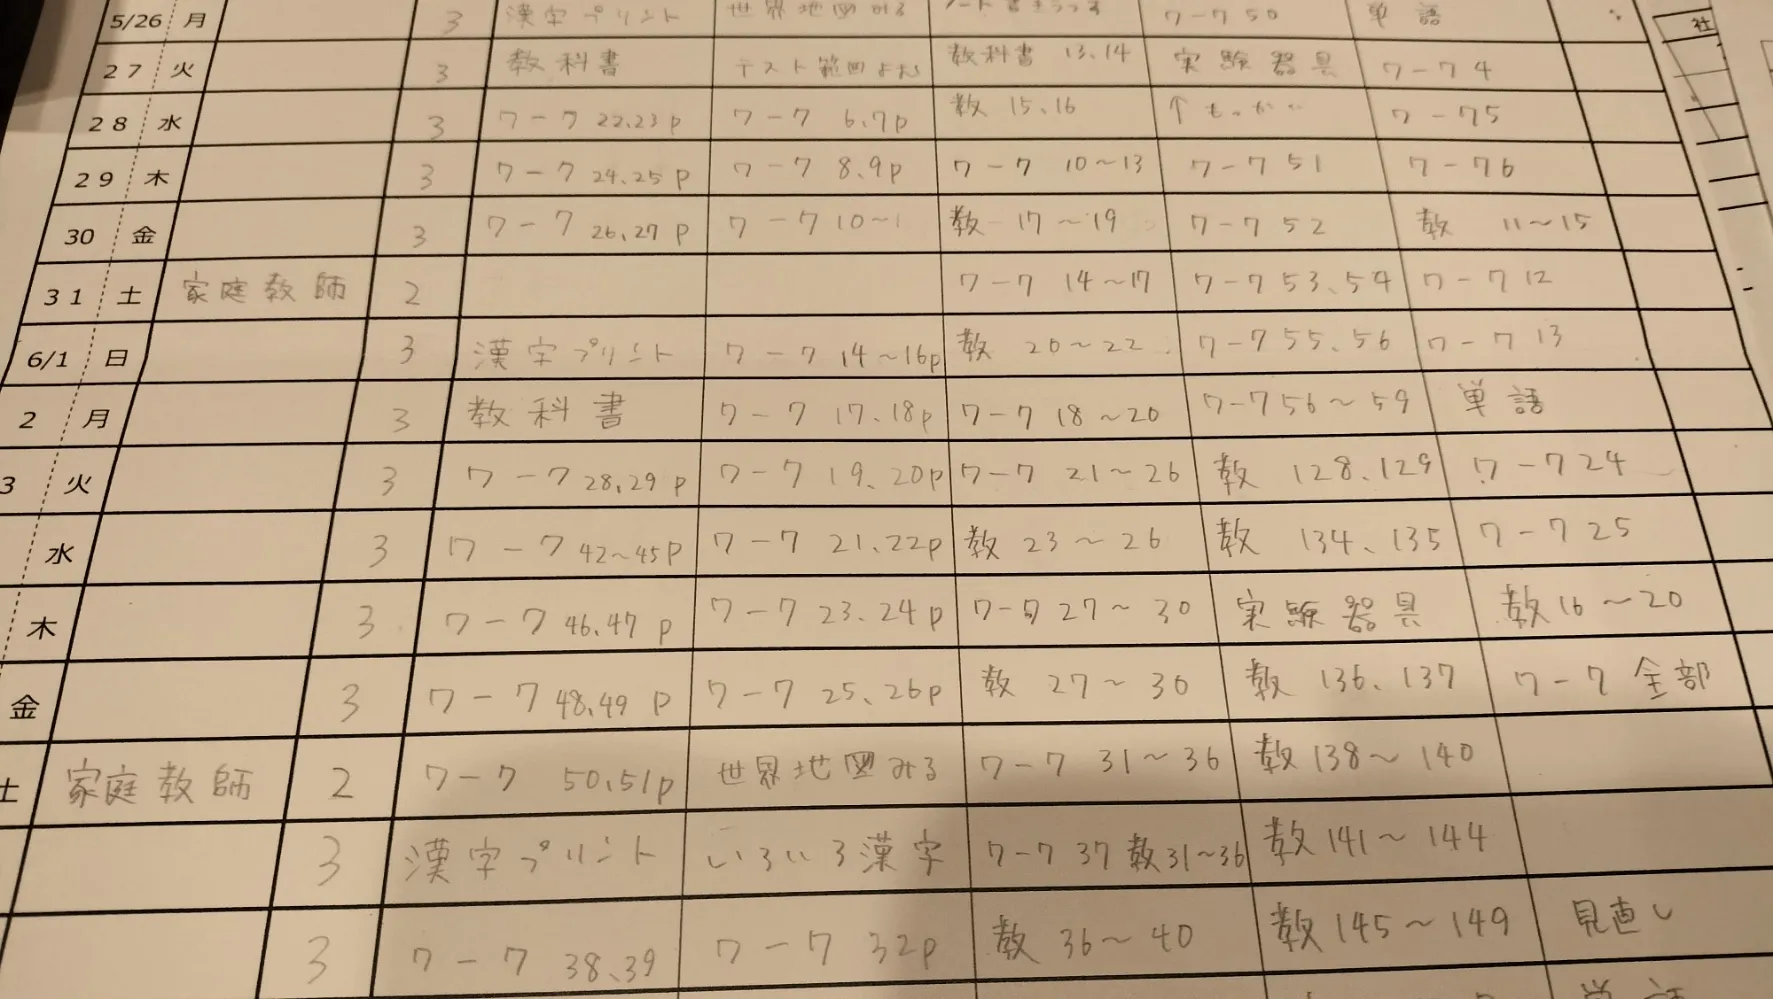 5/26 月 3 漢字プリント 世界地図みる ノート書きうつす ワーク 50 単語
社
27 火 3 教科書 テスト範囲よむ 教科書 13、14 実験器具 ワーク 4
28 水 3 ワーク 22、23p ワーク 6、7p 教 15、16 ↑もっかい ワーク5
29 木 3 ワーク 24、25p ワーク 8、9p ワーク 10〜13 ワーク 51 ワーク6
30 金 3 ワーク 26、27p ワーク 10〜 教 17〜19 ワーク 52 教 11〜15
31 土 家庭教師 2 ワーク 14〜17 ワーク 53、54 ワーク 12
6/1 日 3 漢字プリント ワーク 14〜16p 教 20〜22 ワーク 55、56 ワーク 13
2 月 3 教科書 ワーク 17、18p ワーク 18〜20 ワーク 56〜59 単語
3 火 3 ワーク 28、29p ワーク 19、20p ワーク 21〜26 教 128、129 ワーク 24
水 3 ワーク 42〜45p ワーク 21、22p 教 23〜26 教 134、135 ワーク 25
木 3 ワーク 46、47p ワーク 23、24p ワーク 27〜30 実験器具 教 16〜20
金 3 ワーク 48、49p ワーク 25、26p 教 27〜30 教 136、137 ワーク 全部
土 家庭教師 2 ワーク 50、51p 世界地図みる ワーク 31〜36 教 138〜140
3 漢字プリント いろいろ漢字 ワーク 37 教 31〜36 教 141〜144
3 ワーク 38、39 ワーク 32p 教 36〜40 教 145〜149 見直し
単語